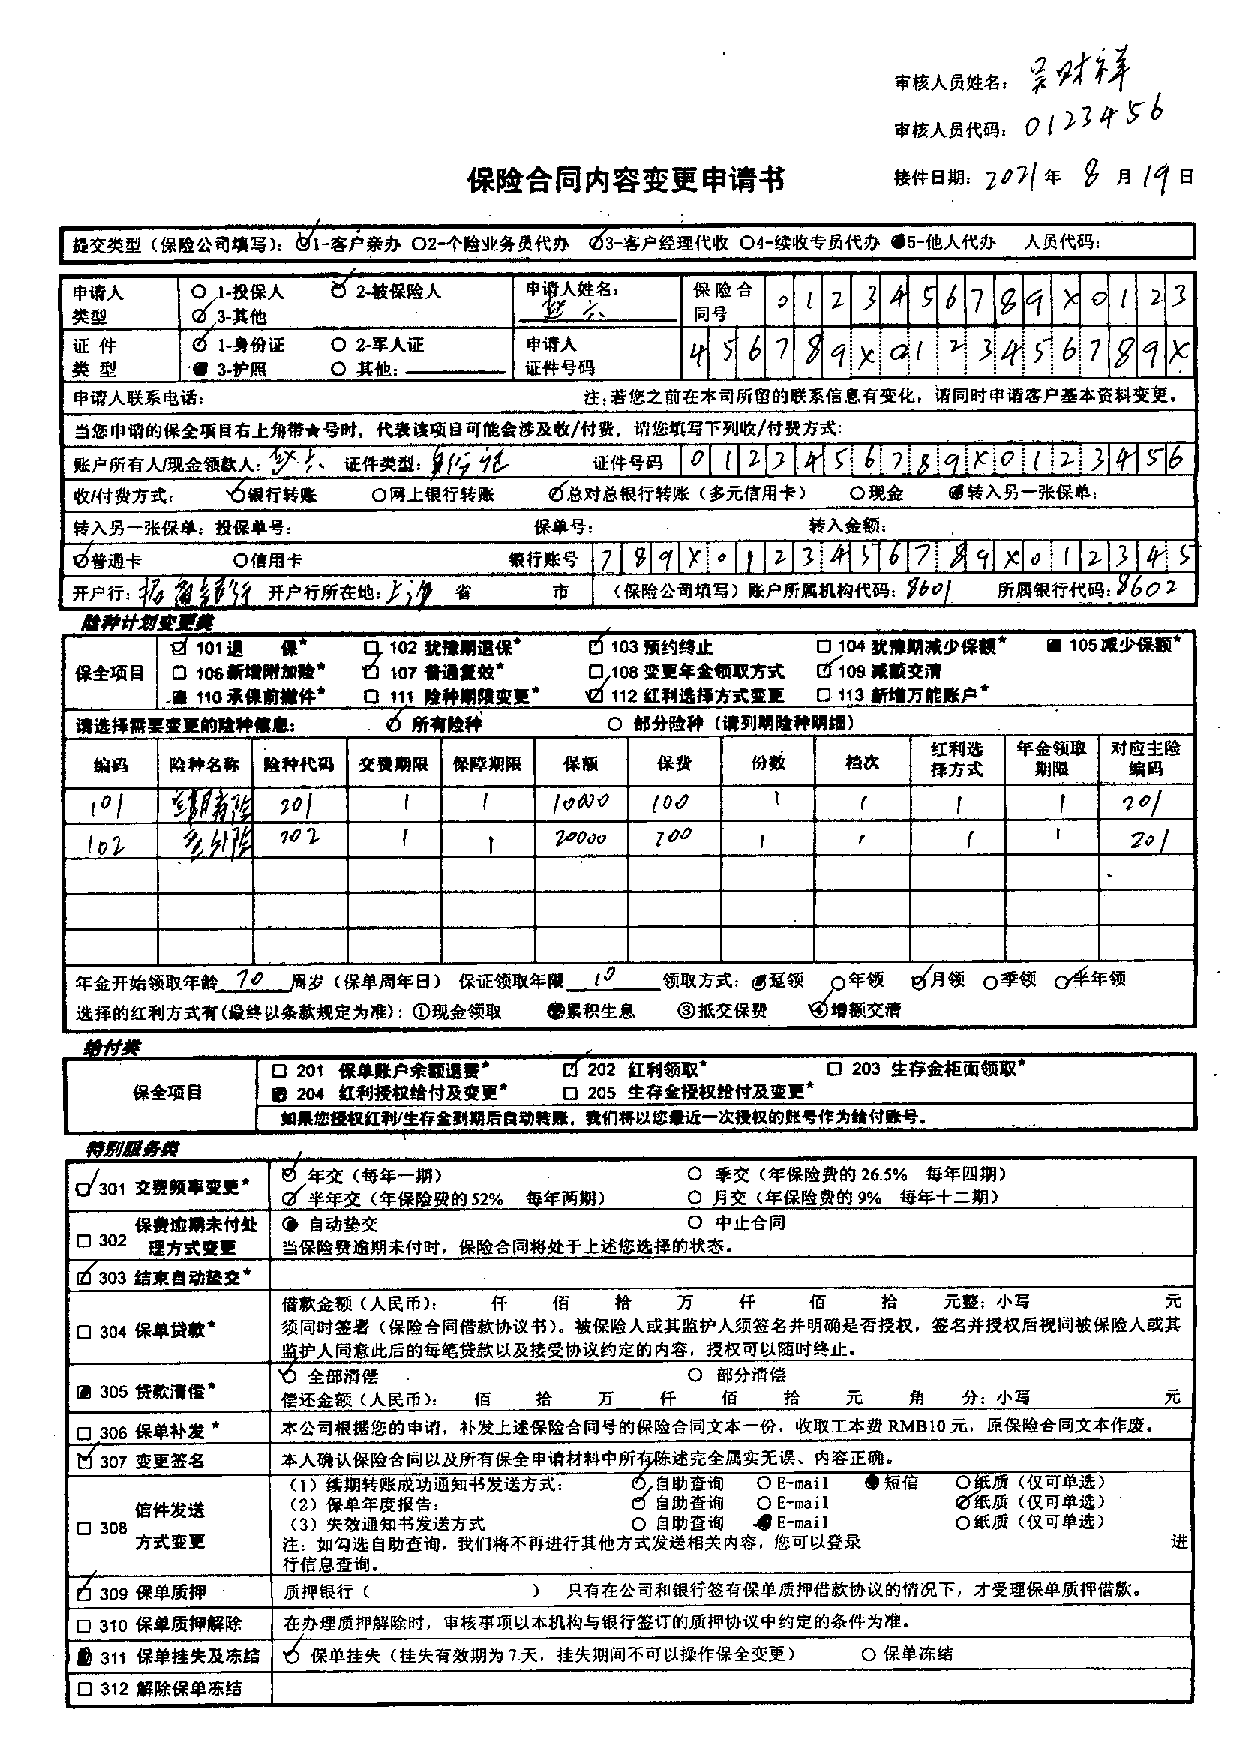 审核人员姓名: 吴财祥
审核人员代码: 0123456
保险合同内容变更申请书 接件日期: 2021年 8月19日
提交类型（保险公司填写）: 1-客户亲办 2-个险业务员代办 3-客户经理代收 4-续收专员代办 5-他人代办 人员代码:
申请人类型 1-投保人 2-被保险人 3-其他 申请人姓名: 保险合同号 0123456789X0123
证件类型 1-身份证 2-军人证 3-护照 其他: 申请人证件号码 456789X0123456789X
申请人联系电话: 注:若您之前在本司所留的联系信息有变化，请同时申请客户基本资料变更。
当您申请的保全项目右上角带★号时，代表该项目可能会涉及收/付费，请您填写下列收/付费方式:
账户所有人/现金领款人: 证件类型: 身份证 证件号码 0123456789X0123456
收/付费方式: 银行转账 网上银行转账 总对总银行转账（多元信用卡） 现金 转入另一张保单:
转入另一张保单: 投保单号: 保单号: 转入金额:
普通卡 信用卡 银行账号 789X0123456789X012345
开户行: 招商银行 开户行所在地: 上海 省 市 （保险公司填写）账户所属机构代码: 8601 所属银行代码: 8602
险种计划变更类
保全项目 101 退 保* 102 犹豫期退保* 103 预约终止 104 犹豫期减少保额* 105 减少保额*
106 新增附加险* 107 普通复效* 108 变更年金领取方式 109 减额交清
110 承保前撤件* 111 险种期限变更* 112 红利选择方式变更 113 新增万能账户*
请选择需要变更的险种信息: 所有险种 部分险种（请列明险种明细）
编码 险种名称 险种代码 交费期限 保障期限 保额 保费 份数 档次 红利选择方式 年金领取期限 对应主险编码
101 201 1 1 10000 100 1 1 1 1 201
102 意外险 202 1 1 20000 200 1 1 1 1 201
年金开始领取年龄 70 周岁（保单周年日） 保证领取年限 10 领取方式: 趸领 年领 月领 季领 半年领
选择的红利方式有(最终以条款规定为准): ①现金领取 ②累积生息 ③抵交保费 ④增额交清
给付类
保全项目 201 保单账户余额退费* 202 红利领取* 203 生存金柜面领取*
204 红利授权给付及变更* 205 生存金授权给付及变更*
如果您授权红利/生存金到期后自动转账，我们将以您最近一次授权的账号作为给付账号。
特别服务类
301 交费频率变更* 年交（每年一期） 季交（年保险费的26.5% 每年四期）
半年交（年保险费的52% 每年两期） 月交（年保险费的9% 每年十二期）
302 保费逾期未付处理方式变更 自动垫交 中止合同
当保险费逾期未付时，保险合同将处于上述您选择的状态。
303 结束自动垫交*
304 保单贷款* 借款金额（人民币）: 仟 佰 拾 万 仟 佰 拾 元整: 小写 元
须同时签署（保险合同借款协议书）。被保险人或其监护人须签名并明确是否授权，签名并授权后视同被保险人或其
监护人同意此后的每笔贷款以及接受协议约定的内容，授权可以随时终止。
305 贷款清偿* 全部清偿 部分清偿
偿还金额（人民币）: 佰 拾 万 仟 佰 拾 元 角 分: 小写 元
306 保单补发 * 本公司根据您的申请，补发上述保险合同号的保险合同文本一份，收取工本费 RMB10 元，原保险合同文本作废。
307 变更签名 本人确认保险合同以及所有保全申请材料中所有陈述完全属实无误、内容正确。
308 信件发送方式变更 （1）续期转账成功通知书发送方式: 自助查询 E-mail 短信 纸质（仅可单选）
（2）保单年度报告: 自助查询 E-mail 纸质（仅可单选）
（3）失效通知书发送方式 自助查询 E-mail 纸质（仅可单选）
注: 如勾选自助查询，我们将不再进行其他方式发送相关内容，您可以登录 进
行信息查询。
309 保单质押 质押银行（ ） 只有在公司和银行签有保单质押借款协议的情况下，才受理保单质押借款。
310 保单质押解除 在办理质押解除时，审核事项以本机构与银行签订的质押协议中约定的条件为准。
311 保单挂失及冻结 保单挂失（挂失有效期为7天，挂失期间不可以操作保全变更） 保单冻结
312 解除保单冻结